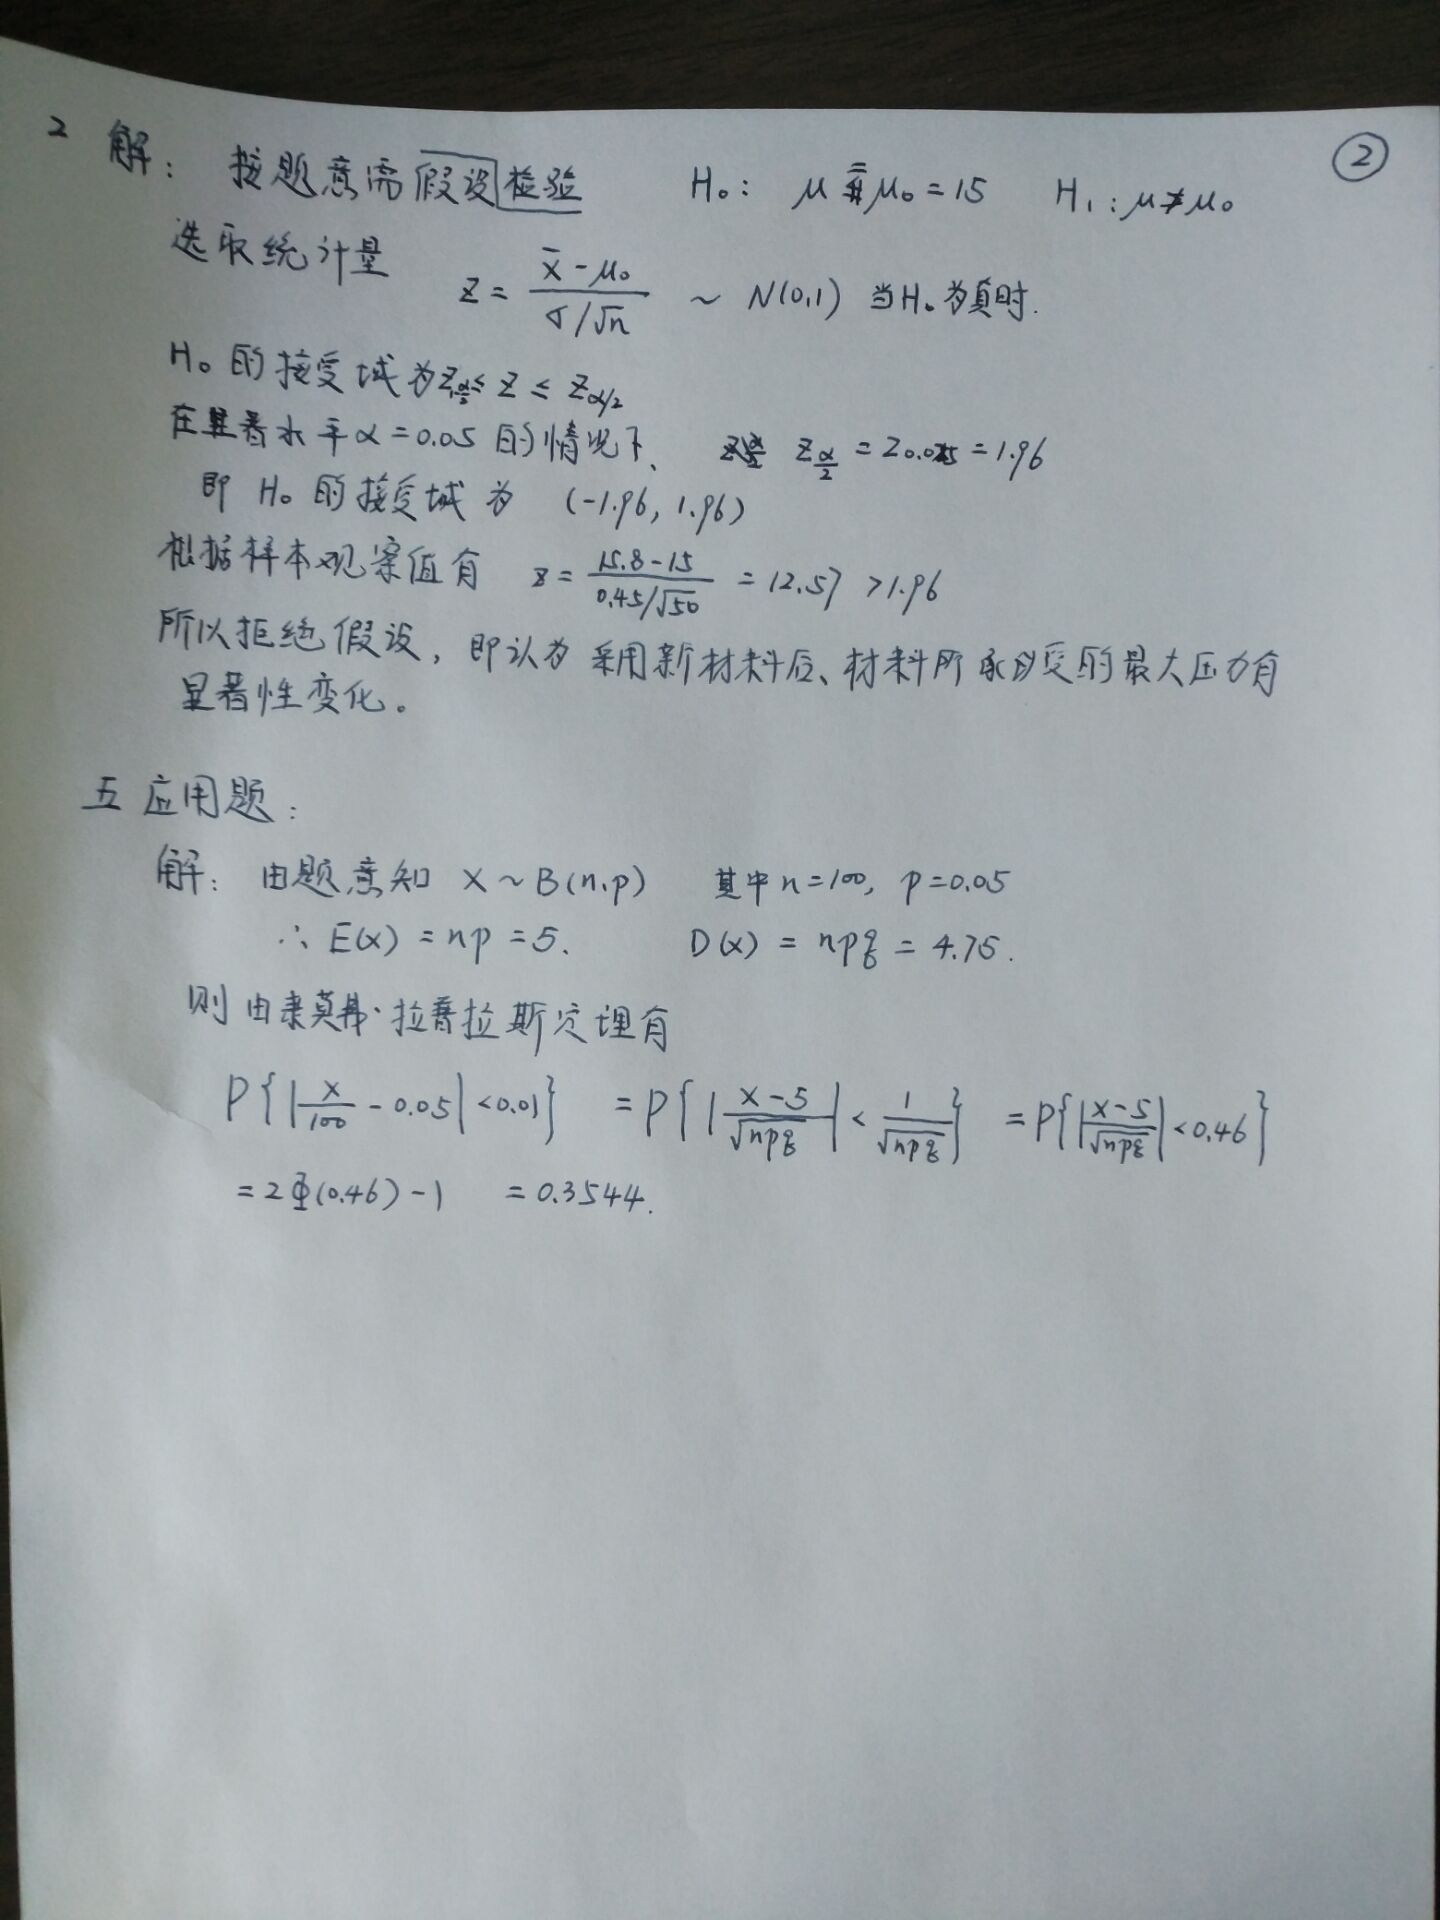 ②
2 解: 按题意需假设检验 H₀: μ = μ₀ = 15 H₁: μ ≠ μ₀
选取统计量 Z = (x̄ - μ₀) / (σ/√n) ~ N(0,1) 当H₀为真时.
H₀的接受域为 Z₁₋α/₂ ≤ Z ≤ Zα/₂
在显著水平α=0.05的情况下、 Zα/₂ = Z0.025 = 1.96
即 H₀ 的接受域为 (-1.96, 1.96)
根据样本观察值有 z = (15.8-15) / (0.45/√50) = 12.57 > 1.96
所以拒绝假设, 即认为采用新材料后、材料所承受的最大压力有
显著性变化。
五 应用题:
解: 由题意知 X ~ B(n,p) 其中 n=100, p=0.05
∴ E(x) = np = 5. D(x) = npq = 4.75.
则由棣莫弗·拉普拉斯定理有
P{|X/100 - 0.05| < 0.01} = P{|(X-5)/√npq| < 1/√npq} = P{|(X-5)/√npq| < 0.46}
= 2Φ(0.46) - 1 = 0.3544.